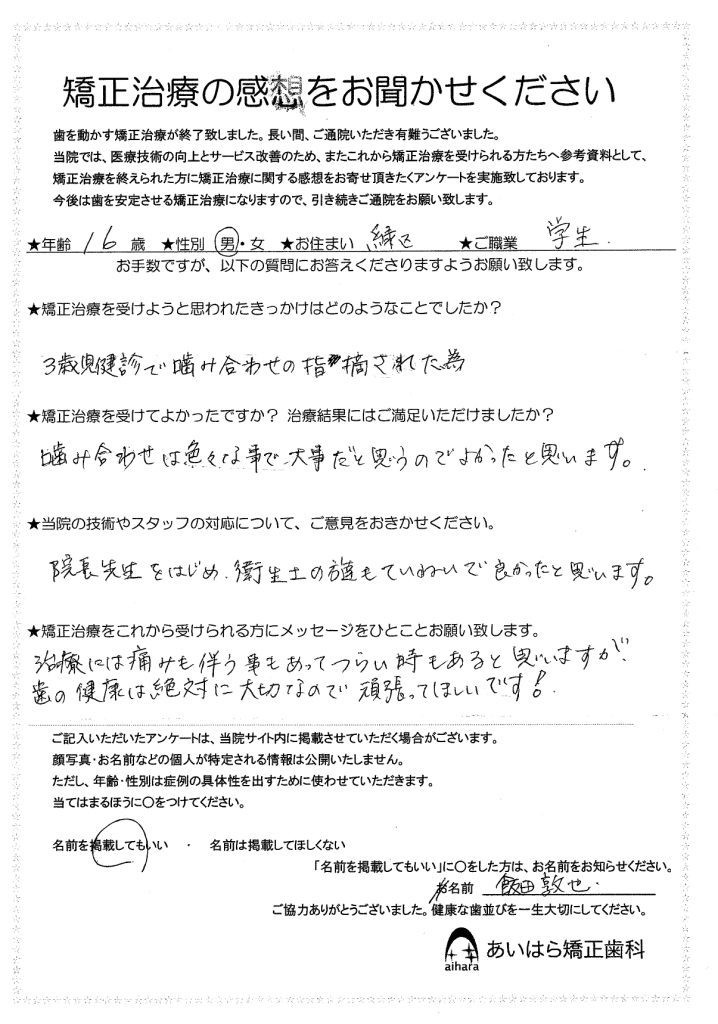 矯正治療の感想をお聞かせください
歯を動かす矯正治療が終了致しました。長い間、ご通院いただき有難うございました。
当院では、医療技術の向上とサービス改善のため、またこれから矯正治療を受けられる方たちへ参考資料として、
矯正治療を終えられた方に矯正治療に関する感想をお寄せ頂きたくアンケートを実施致しております。
今後は歯を安定させる矯正治療になりますので、引き続きご通院をお願い致します。
★年齢 16 歳 ★性別 男・女 ★お住まい 緑区 ★ご職業 学生
お手数ですが、以下の質問にお答えくださりますようお願い致します。
★矯正治療を受けようと思われたきっかけはどのようなことでしたか？
3歳児健診で噛み合わせの指摘された為
★矯正治療を受けてよかったですか？ 治療結果にはご満足いただけましたか？
噛み合わせは色々な事で大事だと思うのでよかったと思います。
★当院の技術やスタッフの対応について、ご意見をおきかせください。
院長先生をはじめ、衛生士の方達もていねいで良かったと思います。
★矯正治療をこれから受けられる方にメッセージをひとことお願い致します。
治療には痛みも伴う事もあってつらい時もあると思いますが、
歯の健康は絶対に大切なので頑張ってほしいです！
ご記入いただいたアンケートは、当院サイト内に掲載させていただく場合がございます。
顔写真・お名前などの個人が特定される情報は公開いたしません。
ただし、年齢・性別は症例の具体性を出すために使わせていただきます。
当てはまるほうに○をつけてください。
名前を掲載してもいい ・ 名前は掲載してほしくない
「名前を掲載してもいい」に○をした方は、お名前をお知らせください。
お名前 飯田敦也
ご協力ありがとうございました。健康な歯並びを一生大切にしてください。
aihara あいはら矯正歯科